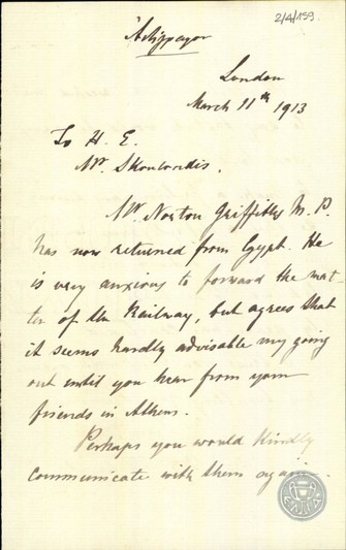 2/4/159
Ἀντίγραφον
London
March 11th 1913
To H. E.
Mr. Skouloudis.
Mr Norton Griffiths M. P.
has now returned from Egypt. He
is very anxious to forward the mat-
ter of the Railway, but agrees that
it seems hardly advisable my going
out until you hear from your
friends in Athens.
Perhaps you would kindly
communicate with them again